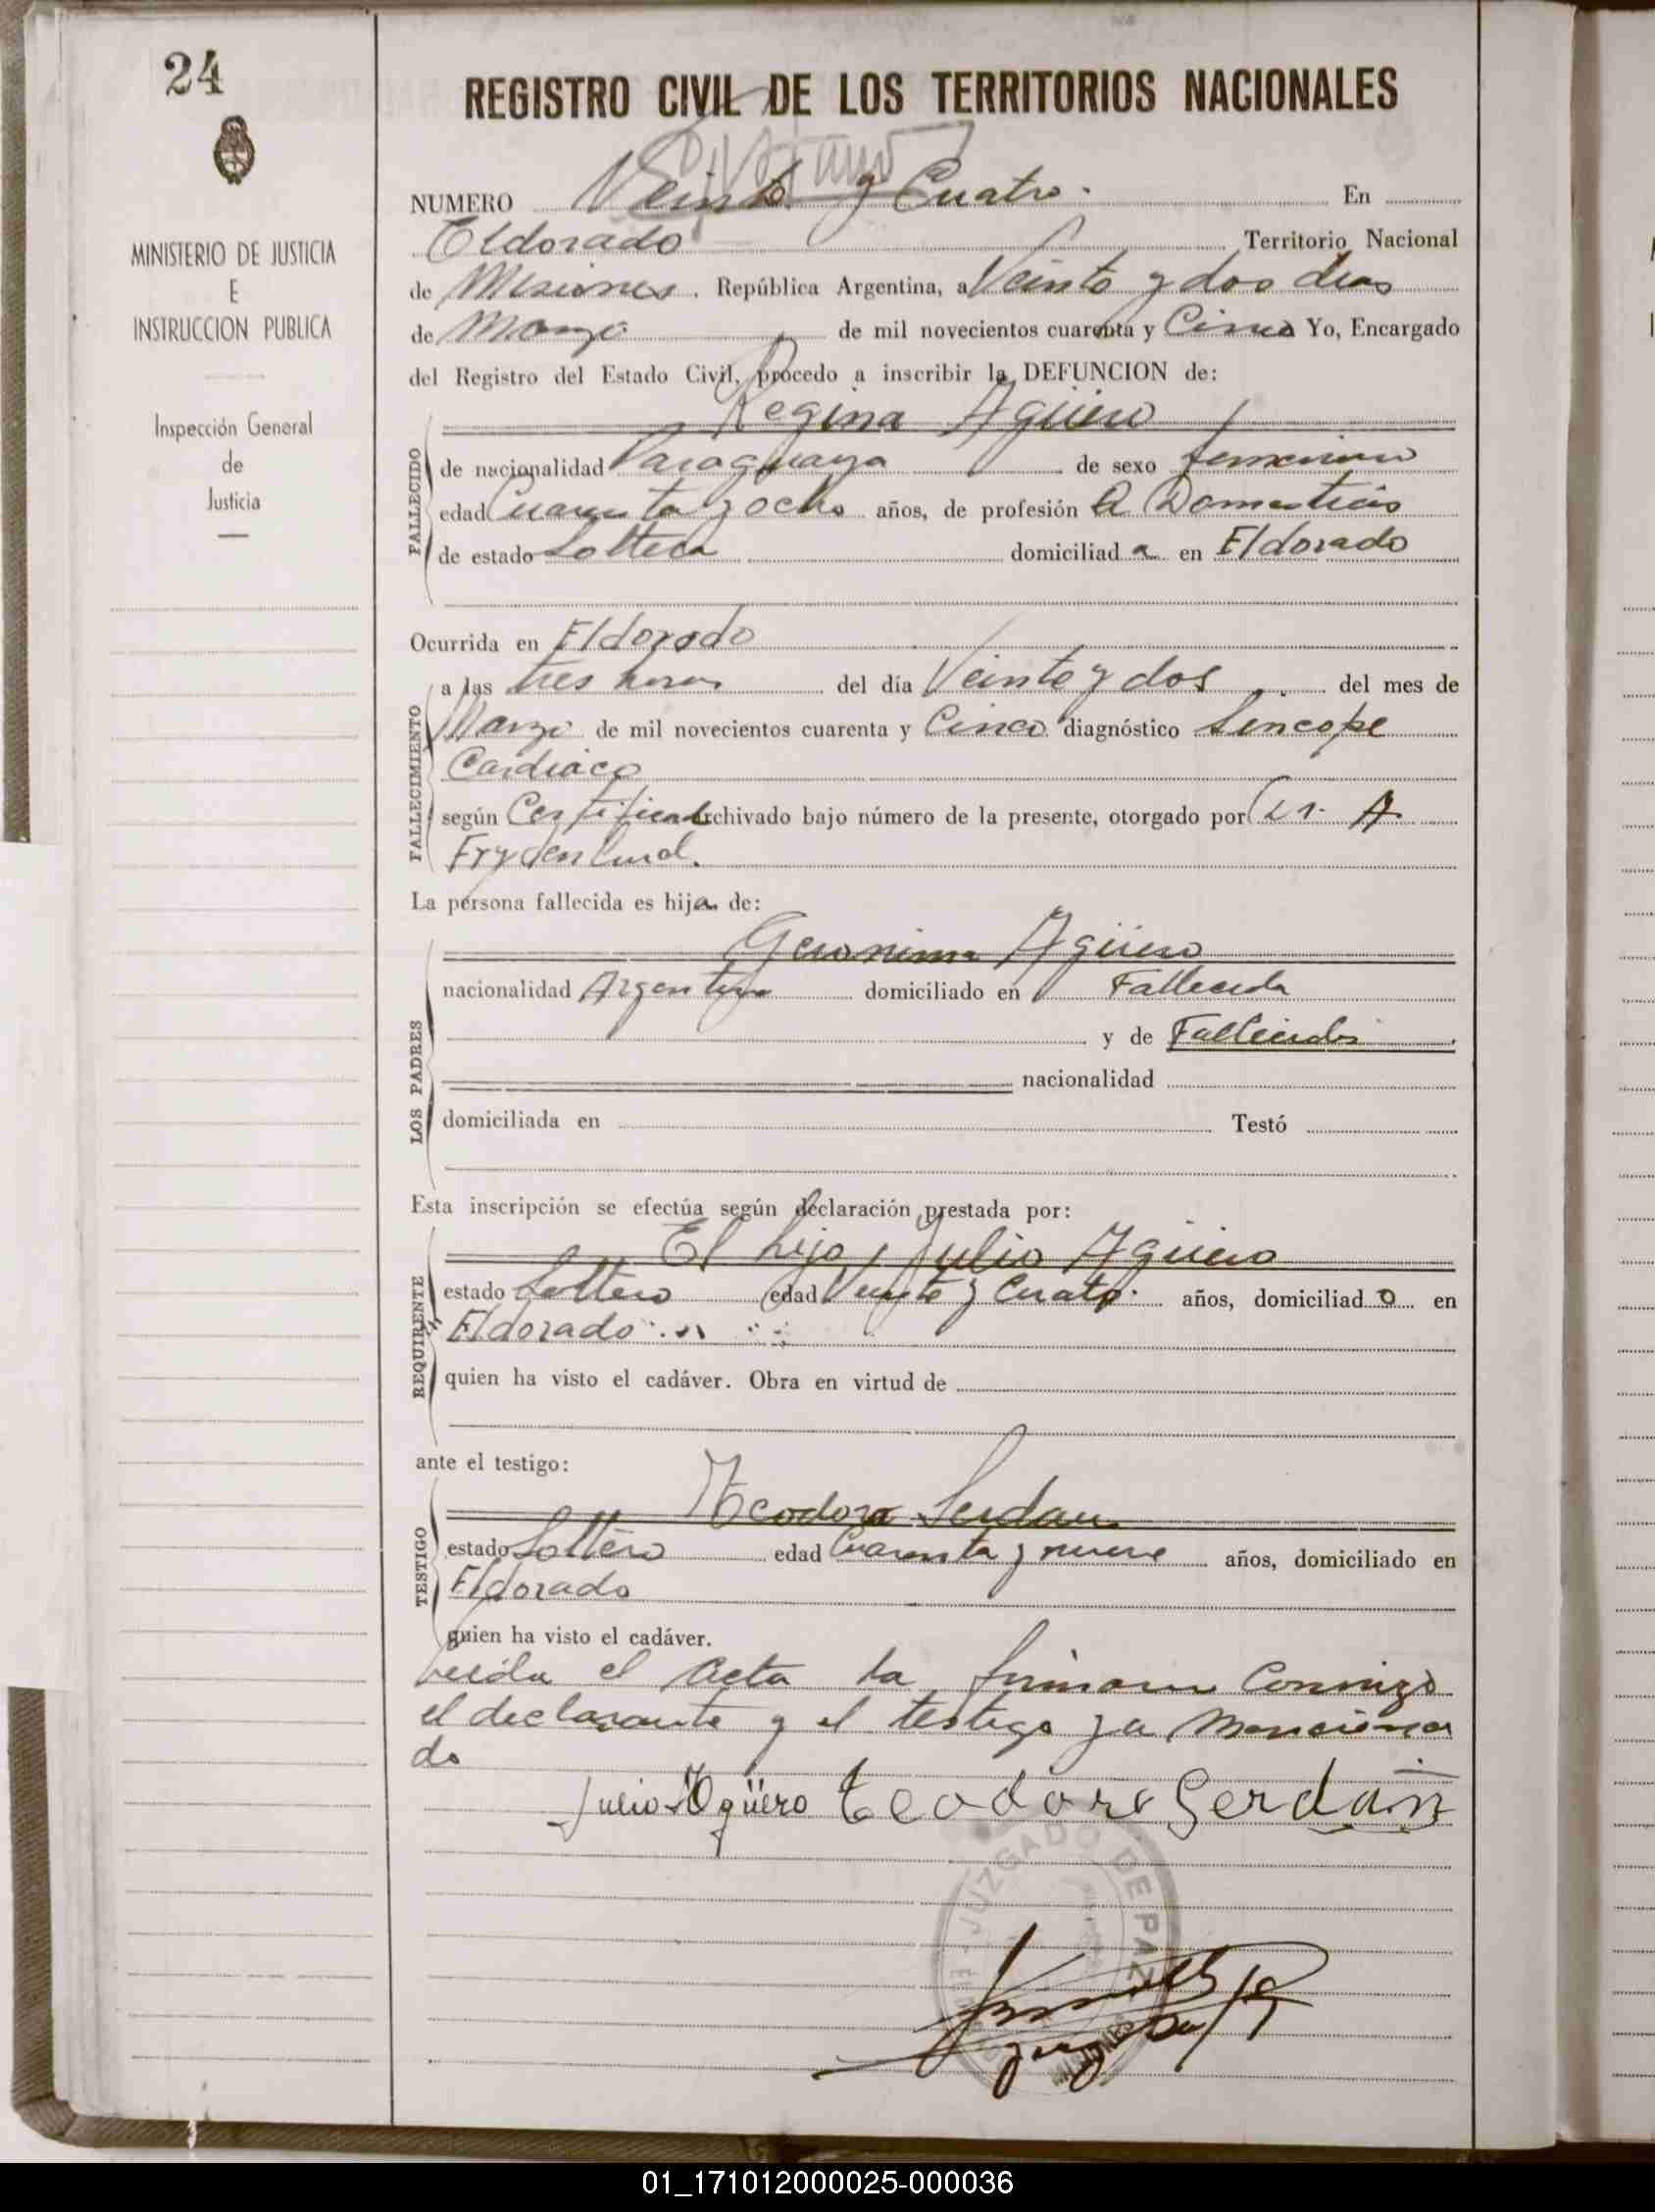 24
MINISTERIO DE JUSTICIA
E
INSTRUCCION PUBLICA
Inspección General
de
Justicia
REGISTRO CIVIL DE LOS TERRITORIOS NACIONALES
NUMERO Veinte y Cuatro. En
Eldorado Territorio Nacional
de Misiones. República Argentina, a Veinte y dos dias
de Marzo de mil novecientos cuarenta y Cinco Yo, Encargado
del Registro del Estado Civil, procedo a inscribir la DEFUNCION de:
Regina Agüero
FALLECIDO
de nacionalidad Paraguaya de sexo femenino
edad Cuarenta y ocho años, de profesión Q Domesticos
de estado Soltera domiciliad a en Eldorado
Ocurrida en Eldorado
FALLECIMIENTO
a las tres horas del día Veinte y dos del mes de
Marzo de mil novecientos cuarenta y Cinco diagnóstico Sincope
Cardiaco
según Certificado archivado bajo número de la presente, otorgado por Dr. A
Frydenlund.
La persona fallecida es hija de:
LOS PADRES
Geronima Agüero
nacionalidad Argentina domiciliado en Fallecida
y de Fallecido
nacionalidad
domiciliada en Testó
Esta inscripción se efectúa según declaración prestada por:
REQUIRENTE
El hijo, Julio Agüero
estado Soltero edad Veinte y Cuatro años, domiciliad o en
Eldorado
quien ha visto el cadáver. Obra en virtud de
ante el testigo:
TESTIGO
Teodoro Serdan
estado Soltero edad Cuarenta y nueve años, domiciliado en
Eldorado
quien ha visto el cadáver.
Leida el Acta la firman Conmigo
el declarante y el testigo ya menciona
do
Julio Agüero Teodoro Serdán
JUZGADO DE PAZ
MISIONES
01_171012000025-000036